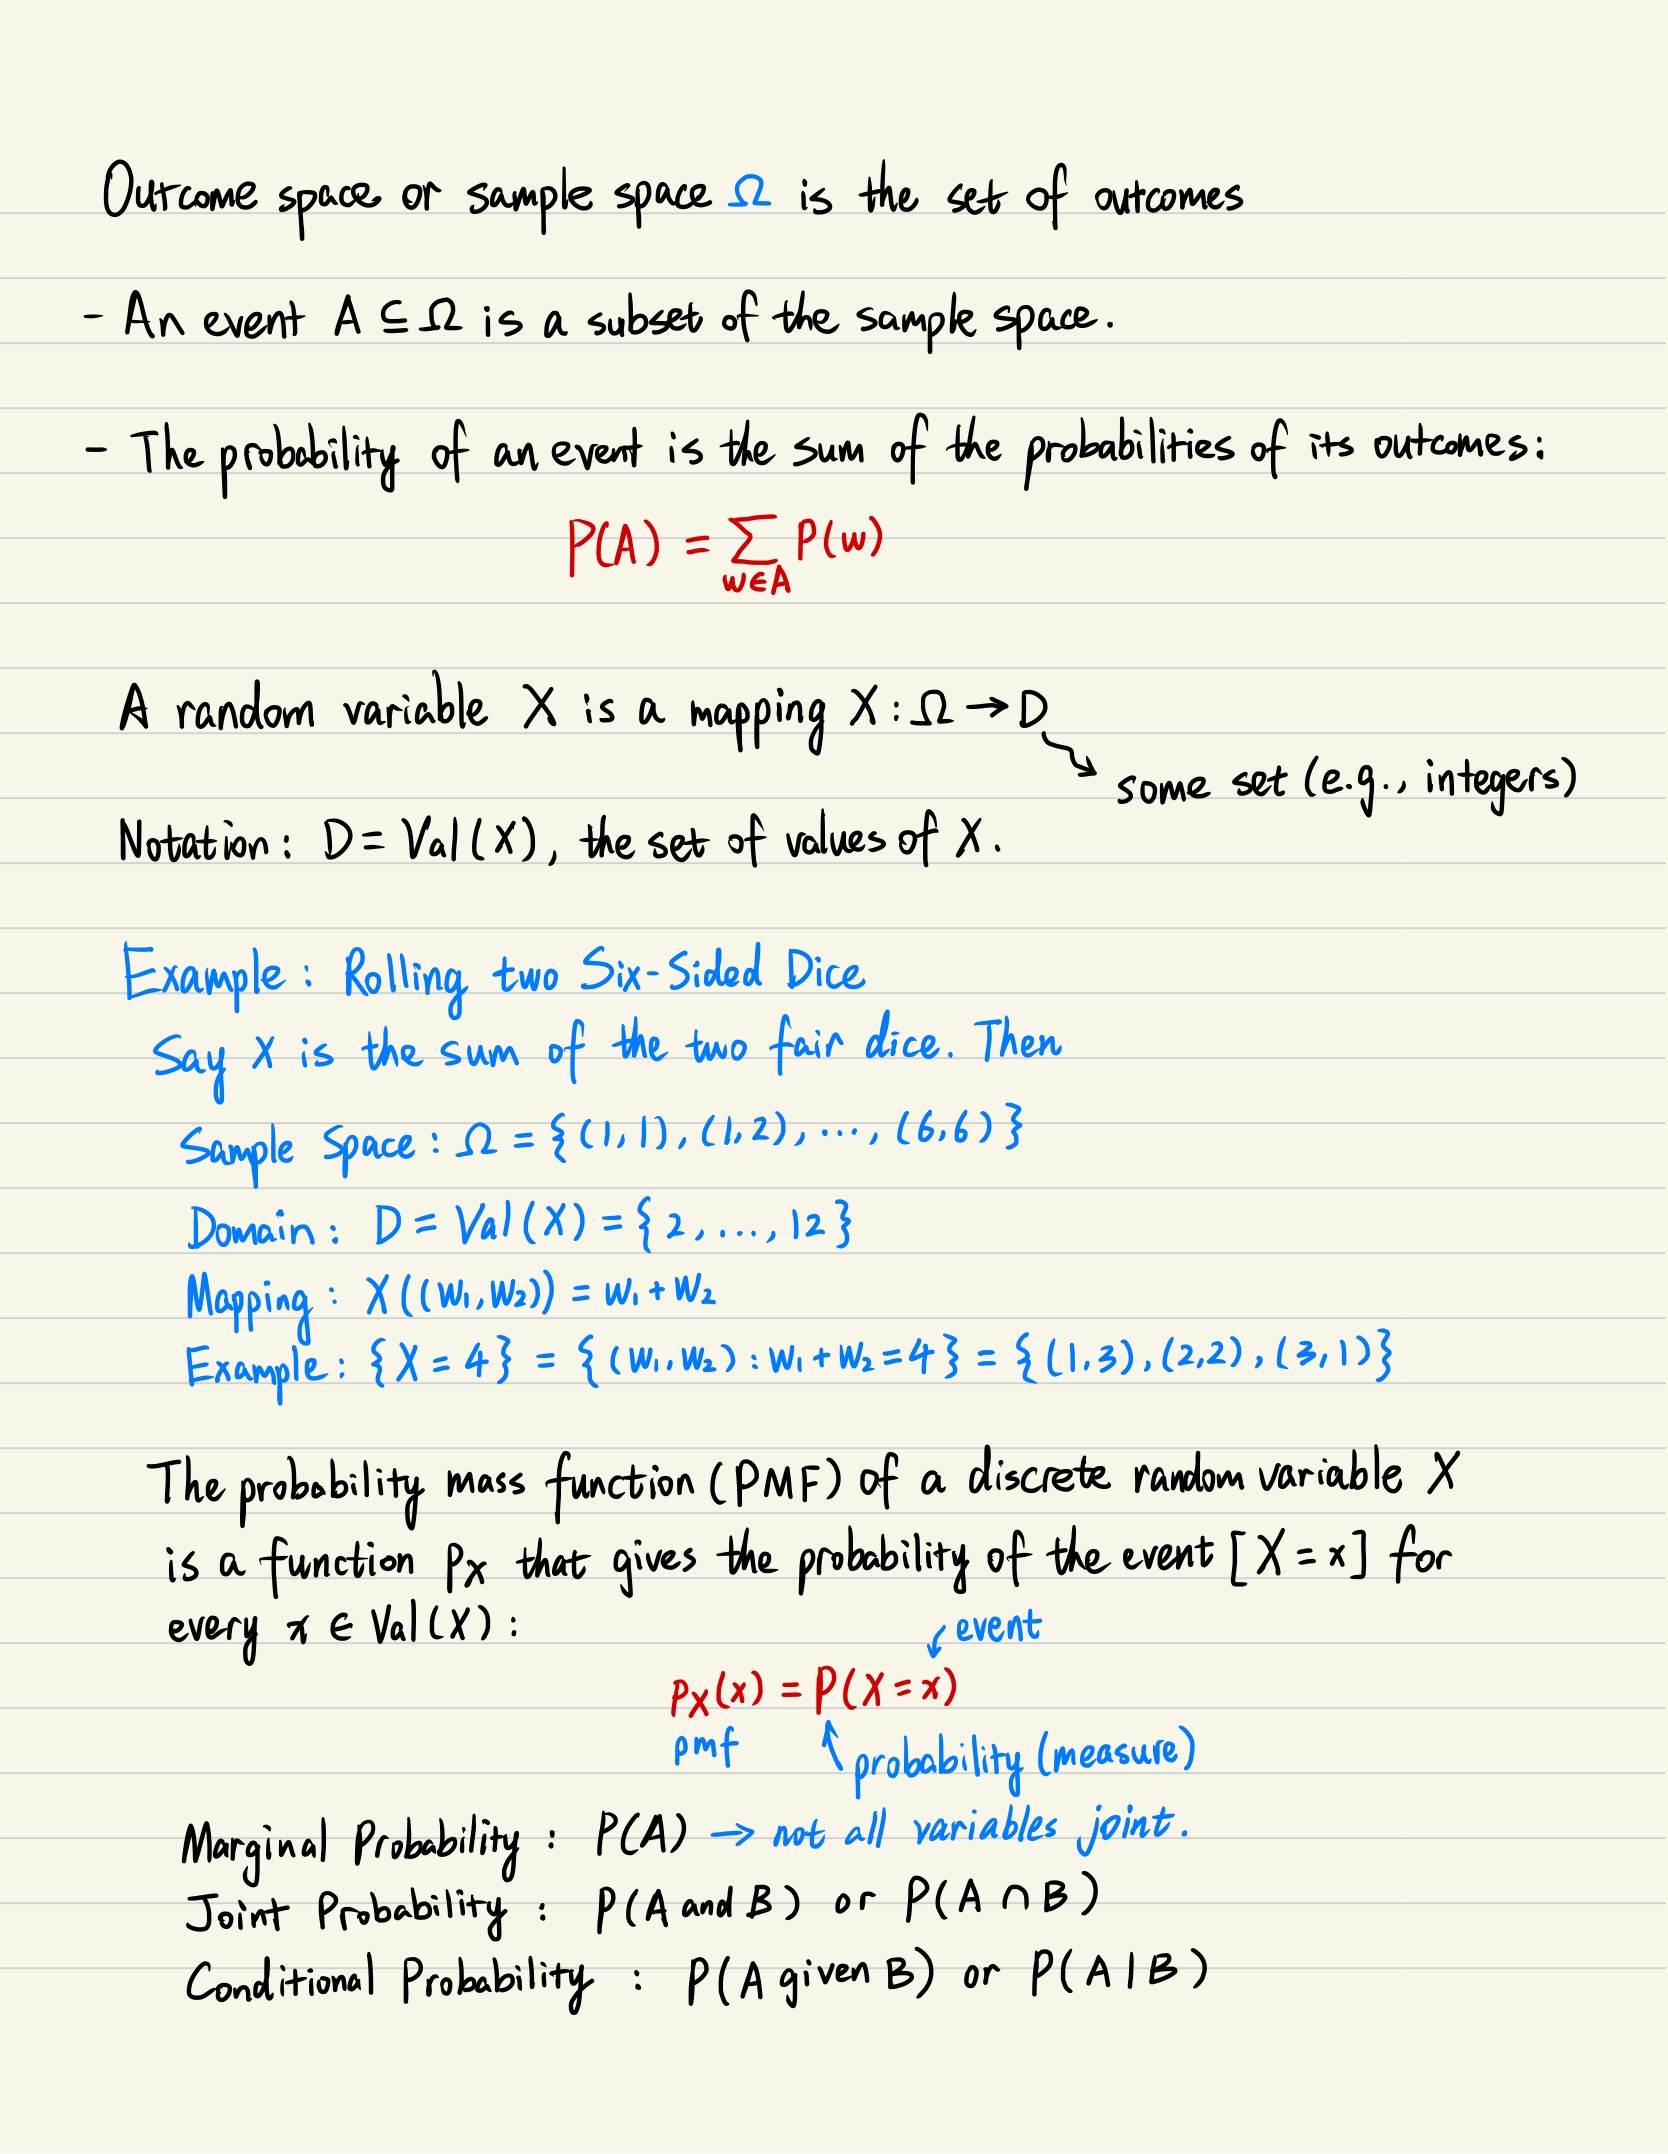 Outcome space or sample space Ω is the set of outcomes
- An event A ⊆ Ω is a subset of the sample space.
- The probability of an event is the sum of the probabilities of its outcomes:
P(A) = ∑ P(w)
w∈A
A random variable X is a mapping X : Ω → D
some set (e.g., integers)
Notation: D = Val(X), the set of values of X.
Example: Rolling two Six-Sided Dice
Say X is the sum of the two fair dice. Then
Sample Space: Ω = {(1,1), (1,2), ..., (6,6)}
Domain: D = Val(X) = {2, ..., 12}
Mapping: X((w₁,w₂)) = w₁ + w₂
Example: {X = 4} = {(w₁,w₂) : w₁ + w₂ = 4} = {(1,3), (2,2), (3,1)}
The probability mass function (PMF) of a discrete random variable X
is a function pₓ that gives the probability of the event [X = x] for
every x ∈ Val(X) :
event
pₓ(x) = P(X = x)
pmf ↑ probability (measure)
Marginal Probability : P(A) → not all variables joint.
Joint Probability : P(A and B) or P(A ∩ B)
Conditional Probability : P(A given B) or P(A | B)